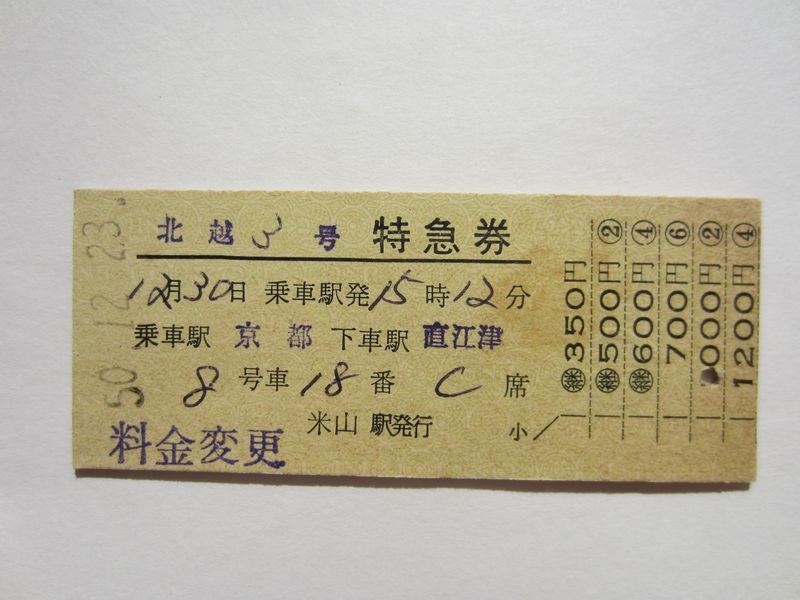 50.12.23.
北越3号 特急券
12月30日 乗車駅発15時12分
乗車駅 京都 下車駅 直江津
8号車18番C席
米山駅発行 小
料金変更
㋿350円
500円②
600円④
700円⑥
000円②
1200円④